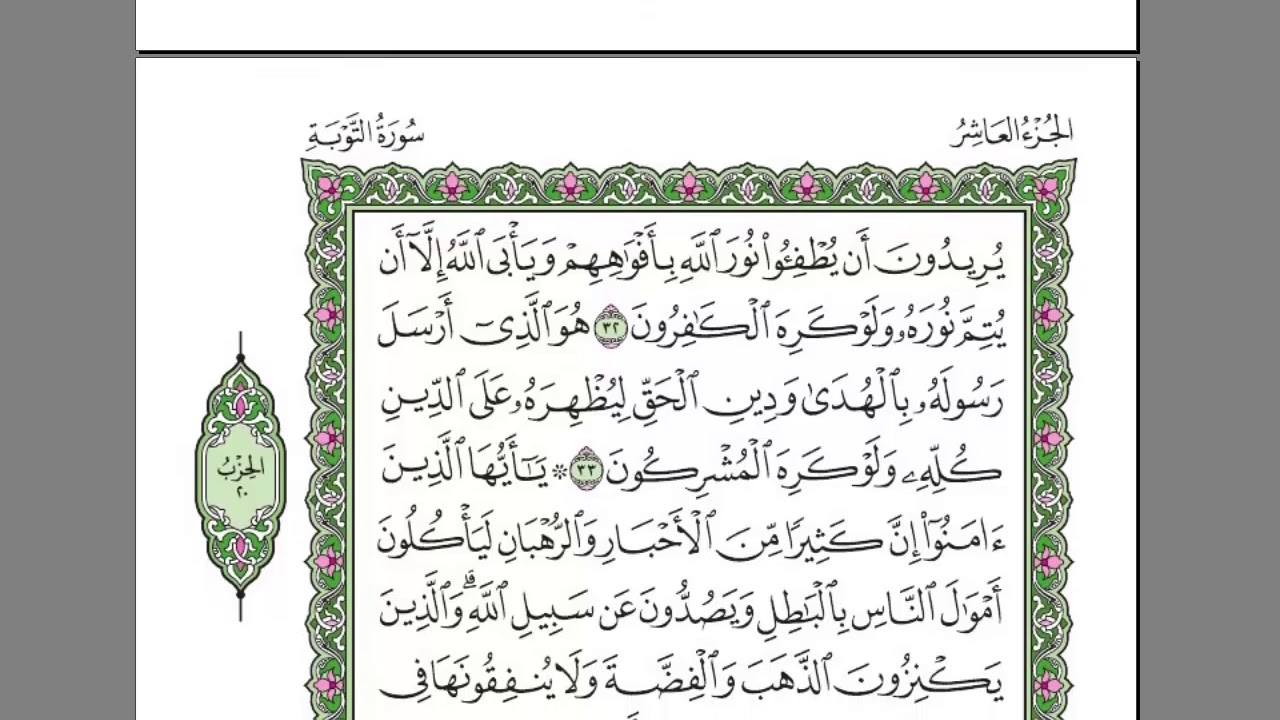 الجُزْءُ العَاشِرُ
سُورَةُ التَّوْبَةِ
يُرِيدُونَ أَن يُطْفِـُٔوا۟ نُورَ ٱللَّهِ بِأَفْوَٰهِهِمْ وَيَأْبَى ٱللَّهُ إِلَّآ أَن
يُتِمَّ نُورَهُۥ وَلَوْ كَرِهَ ٱلْكَـٰفِرُونَ ٣٢ هُوَ ٱلَّذِىٓ أَرْسَلَ
رَسُولَهُۥ بِٱلْهُدَىٰ وَدِينِ ٱلْحَقِّ لِيُظْهِرَهُۥ عَلَى ٱلدِّينِ
كُلِّهِۦ وَلَوْ كَرِهَ ٱلْمُشْرِكُونَ ٣٣ ۞ يَـٰٓأَيُّهَا ٱلَّذِينَ
ءَامَنُوٓا۟ إِنَّ كَثِيرًا مِّنَ ٱلْأَحْبَارِ وَٱلرُّهْبَانِ لَيَأْكُلُونَ
أَمْوَٰلَ ٱلنَّاسِ بِٱلْبَـٰطِلِ وَيَصُدُّونَ عَن سَبِيلِ ٱللَّهِ ۗ وَٱلَّذِينَ
يَكْنِزُونَ ٱلذَّهَبَ وَٱلْفِضَّةَ وَلَا يُنفِقُونَهَا فِى
الحِزْبُ
٢٠